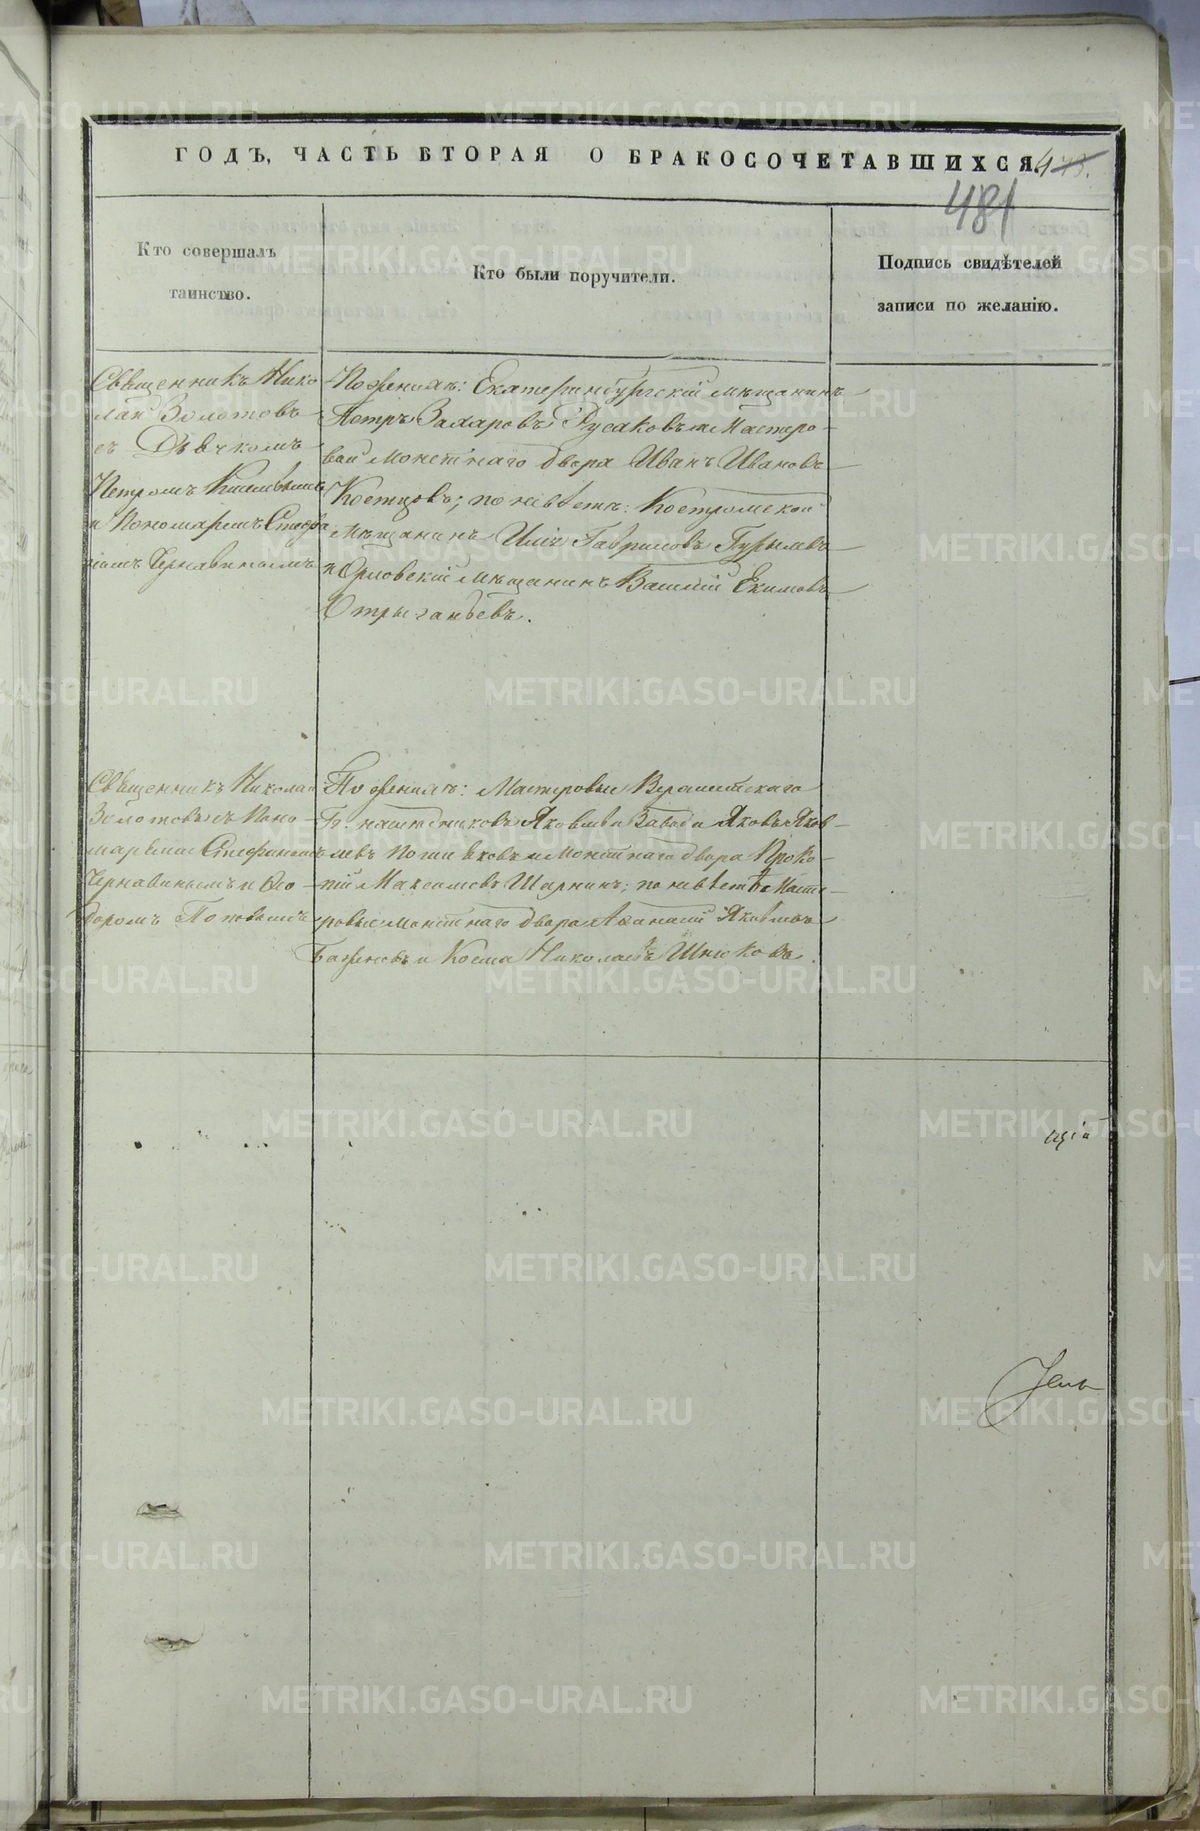 ГОДЪ, ЧАСТЬ ВТОРАЯ О БРАКОСОЧЕТАВШИХСЯ.
481
Кто совершалъ
таинство.
Кто были поручители.
Подпись свидѣтелей
записи по желанію.
Священникъ Нико
лай Золотовъ
съ Дьячкомъ
Петромъ
и Пономаремъ Стефа
номъ Чернавинымъ
По женихѣ: Екатеринбургскій мѣщанинъ
Петръ Захаровъ Русаковъ и Мастеро-
вой монетнаго двора Иванъ Ивановъ
Костцовъ; по невѣстѣ: Костромской
мѣщанинъ Гавриловъ
и Орловскій мѣщанинъ Василій Екимовъ
Священникъ Николай
Золотовъ съ Поно-
маремъ Стефаномъ
Чернавинымъ и Ѳео-
доромъ Поповымъ
По женихѣ: Мастеровые Верхисетскаго
Гг. наслѣдниковъ Яковлева Завода Яковъ Яков-
левъ и Монетнаго двора Проко-
пій Максимовъ Шарнинъ; по невѣстѣ Масте-
ровые монетнаго двора Аѳанасій Яковлевъ
Баженовъ и Косма Николаевъ
METRIKI.GASO-URAL.RU